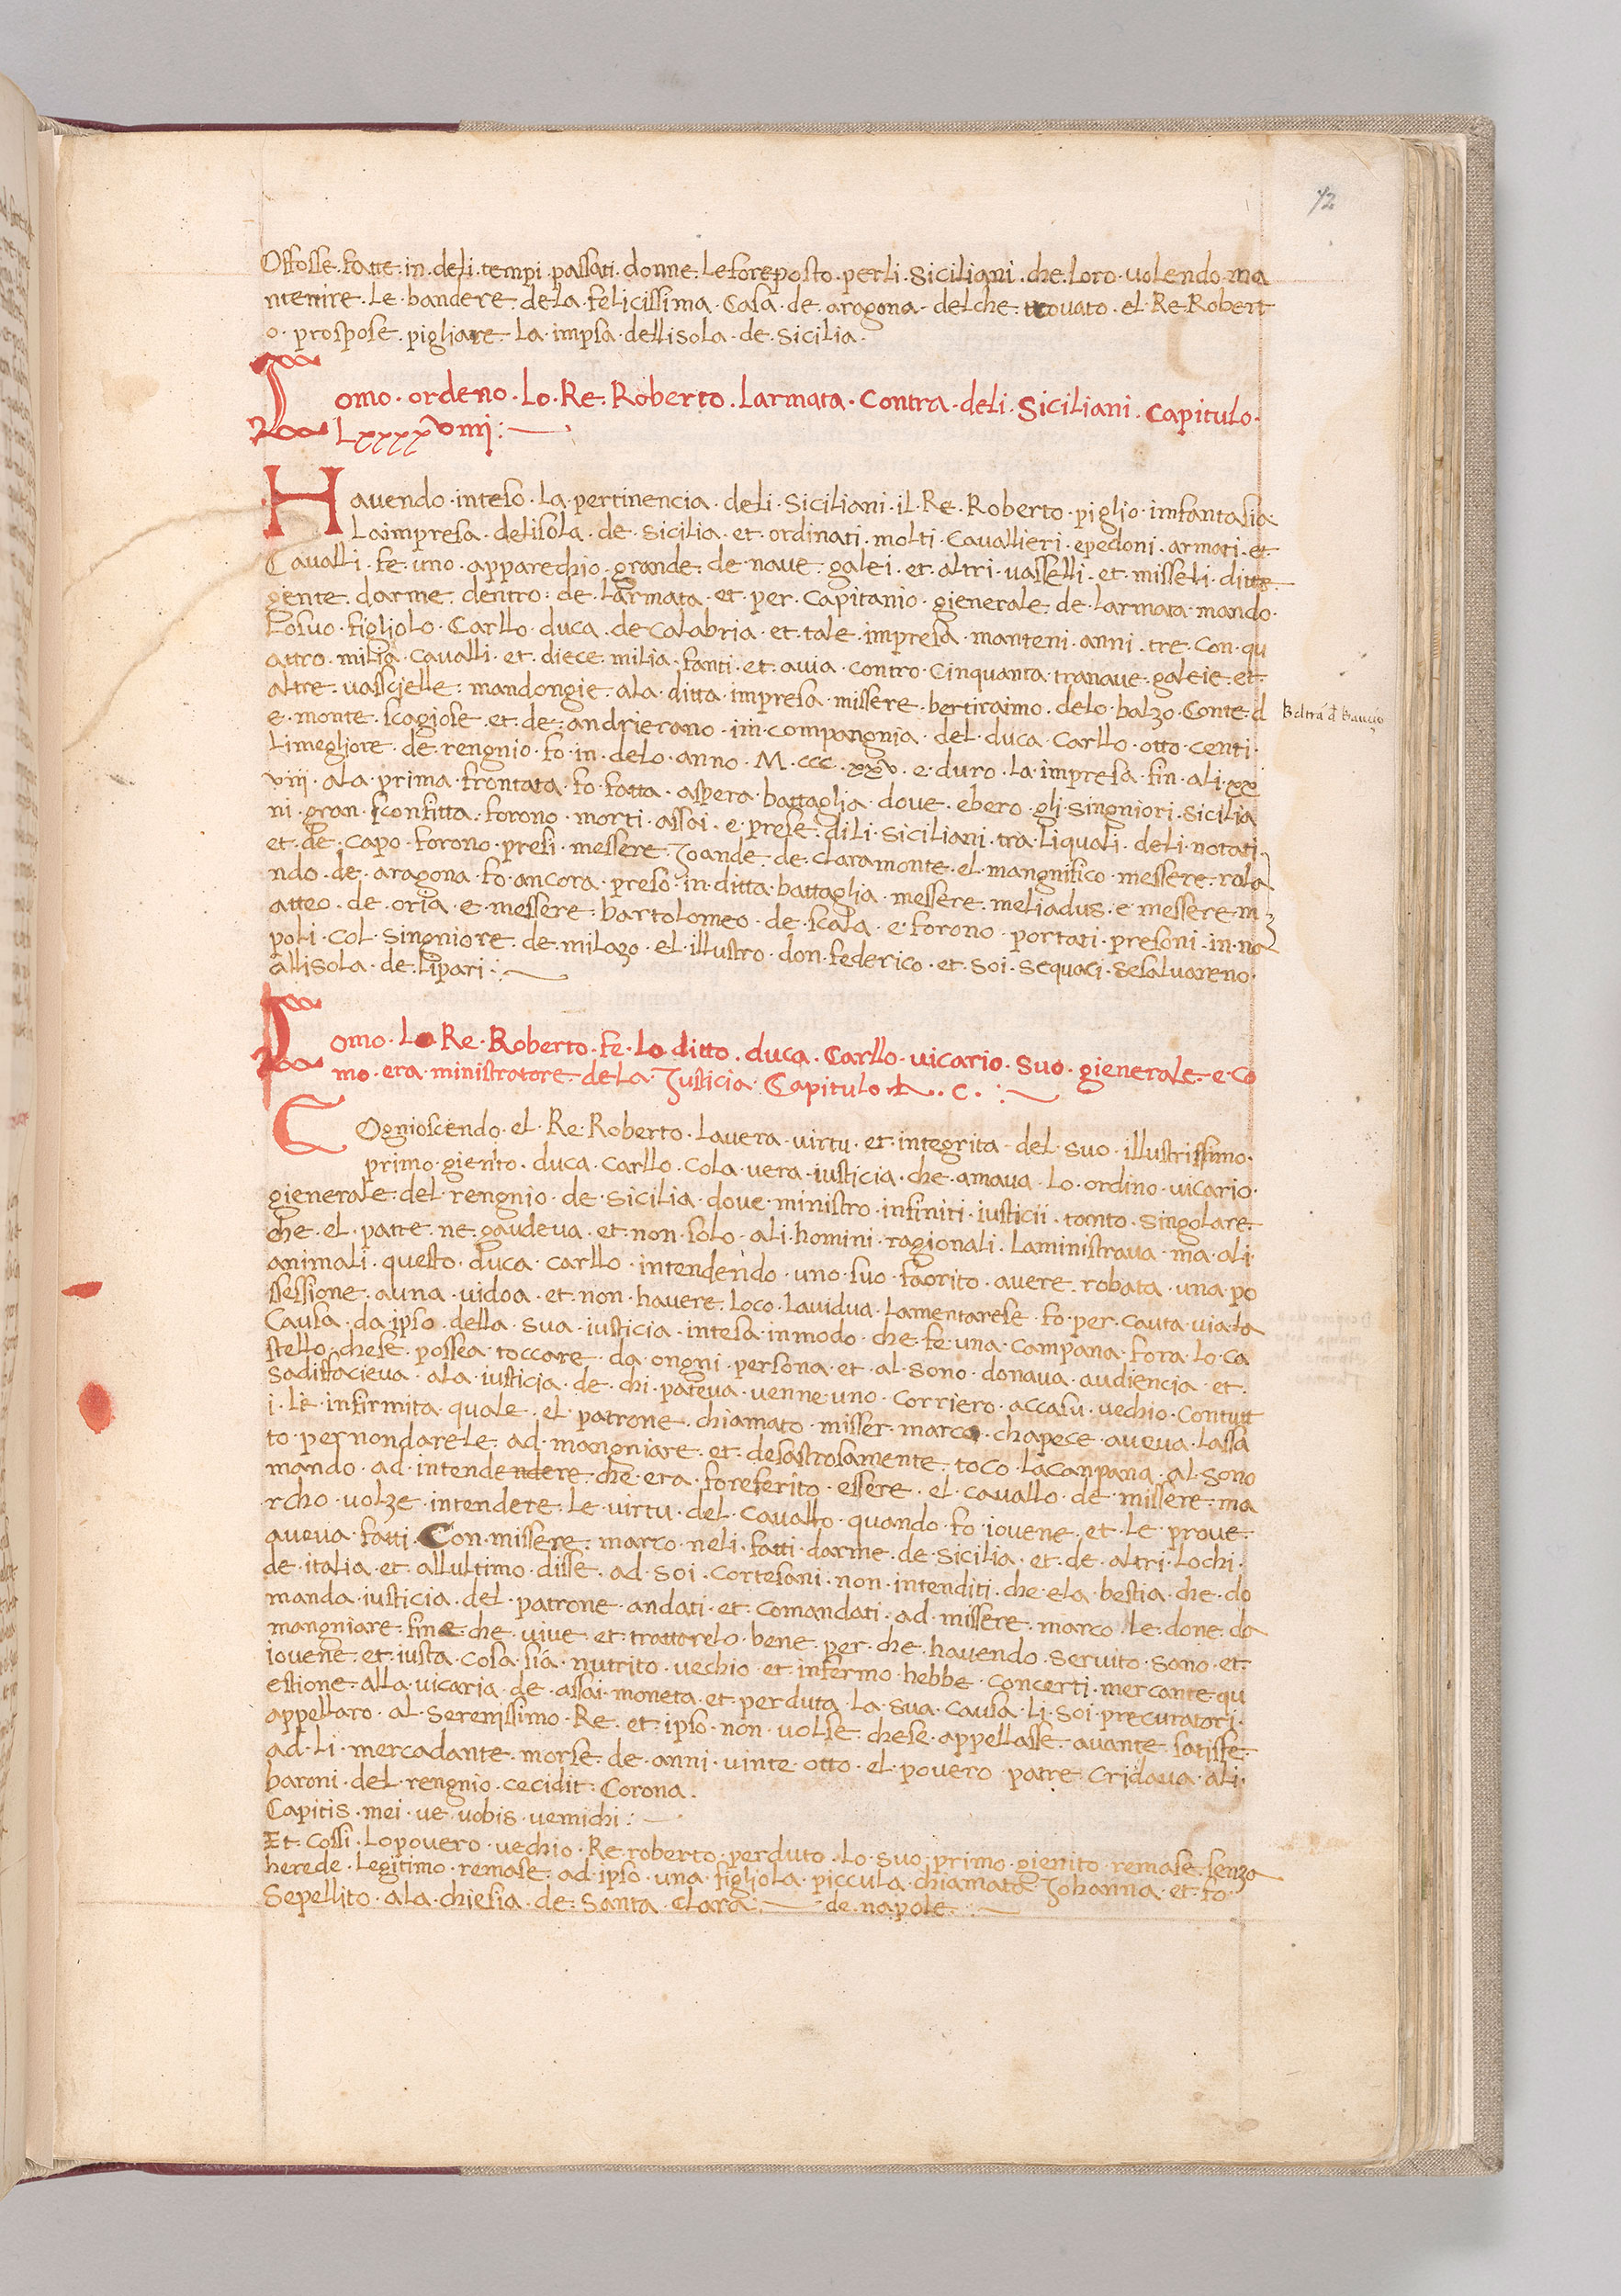 72
Offosse. fatte. in. deli. tempi. passati. donne. Le fore posto. perli. Siciliani. che. Loro. volendo. ma
ntenire. Le. bandere. dela. felicissima. Casa. de. aragona. delche. trovato. el. Re. Robert
o. prospose. pigliare. La. impsa. dellisola. de. Sicilia.
omo. ordeno. Lo. Re. Roberto. Larmata. Contra. deli. Siciliani. Capitulo.
LxxxxViiij:
Havendo. inteso. La. pertinencia. deli. Siciliani. il. Re. Roberto. piglio. imfantasia
Laimpresa. delisola. de. Sicilia. et. ordinati. molti. Cavallieri. epedoni. armati. et
Cavalli. fe. uno. apparechio. grande. de nave. galei. et. altri. vasselli. et. misseli. ditte
giente. darme. dentro: de. Larmata. et. per. Capitanio. gienerale. de. Larmata. mando.
Losuo. figliolo. Carllo. duca. de calabria. et. tale. impresa. manteni. anni. tre. Con. qu
attro. milia. cavalli. et. diece. milia. fanti. et. avia. contro. Cinquanta. tranave. galeie. et
altre. vascielle. mandongie. ala. ditta. impresa. missere. bertiraimo. delo. balzo. Conte. d
e. monte. scagiose. et. de. andrierano. in. compangnia. del. duca. Carllo. otto. centi.
Limegliore. de. rengnio. fo. in. delo. anno. M. ccc. xxv. e. duro. La. impresa. fin. ali. xx
viij. ala. prima. frontata. fo. fatta. aspera. battaglia. dove. ebero. gli. Singniori. Sicilia
ni. gran. sconfitta. forono. morti. assai. e. prese. dili. Siciliani. tra. Liquali. deli. notati.
et. de. capo. forono. presi. messere. Joande. de. claramonte. el. mangnifico. messere. rola
ndo. de. aragona. fo. ancora. preso. in. ditta. battaglia. messere. meliadus. e. messere. m
atteo. de. oria. e. messere. bartolomeo. de. scala. e. forono. portati. presoni. in. na
poli. Col. Singniore. de. milazo. el. illustro. don. federico. et. Soi. Sequaci. Sesalvareno.
allisola. de. Lipari:
Beltrā d̄ Baucio
omo. Lo. Re. Roberto. fe. Lo ditto. duca. Carllo. vicario. Suo. gienerale. e. co
mo. era. ministratore. dela. Justicia. Capitulo. C.:
COgnioscendo. el. Re. Roberto. Lavera. virtu. et. integrita. del. Suo. illustrissimo.
primo. giento. duca. Carllo. Cola. vera. iusticia. che. amava. Lo. ordino. vicario.
gienerale. del. rengnio. de. Sicilia. dove. ministro. infiniti. iusticii. tanto. Singolare.
che. el. patte. ne. gaudeva. et. non. solo. ali. homini. ragionali. Laministrava. ma. ali.
animali. questo. duca. carllo. intendendo. uno. suo. faorito. avere. robata. una. po
ssessione. auna. vidoa. et. non. havere. Loco. Lavidva. Lamentarese. fo. per. cauta. via. La
Causa. da. ipso. della. Sua. iusticia. intesa. inmodo. che. fe. una. campana. fora. Lo. ca
stello. chese. possea. toccare. da. ongni. persona. et. al. Sono. donava. audiencia. et.
Sadisfacieva. ala. iusticia. de. chi. pateva. venne. uno. Corriero. accasu. vechio. Contutt
i. Le. infirmita. quale. el. patrone. chiamato. misser. marco. chapece. aveva. Lassa
to. pernondarele. ad. mangniare. et. desastrosamente. toco. Lacanpana. al. Sono
mando. ad. intendendere. che. era. foreferito. essere. el. cavallo. de. missere. ma
rcho. volze. intendere. Le. virtu. del. Cavallo. quando. fo. iovene. et. Le. prove.
aveva. fatti. Con. missere. marco. neli. fatti. darme. de. Sicilia. et. de. altri. Lochi.
de. italia. et. allultimo. disse. ad. Soi. Cortesani. non. intenditi. che. ela. bestia. che. do
manda. iusticia. del. patrone. andati. et. Comandati. ad. missere. marco. Le. done. da
mangniare. fine. che. vive. et. trattarelo. bene. per. che. havendo. Servito. Sano. et.
iovene. et. iusta. Cosa. Sia. nutrito. vechio. et. infermo. hebbe. Concerti. mercante. qu
estione. alla. vicaria. de. assai. moneta. et. perduta. La. Sua. Causa. Li. Soi. precuratori.
appellaro. al. Serenissimo. Re. et. ipso. non. volse. chese. appellasse. avante. Satisfe.
ad. Li. mercadante. morse. de. anni. vinte. otto. el. povero. patre. Cridava. ali.
baroni. del. rengnio. cecidit. Corona.
Capitis. mei. ve. vobis. vemichi:
Et. Cossi. Lopovero. vechio. Re. roberto. perduto. Lo. Suo. primo. gienito. remase. Senza
herede. Legitimo. remase. ad. ipso. una. figliola. piccula. chiamata. Johanna. et. fo.
Sepellito. ala. chiesia. de. Santa. Clara: de. napole.